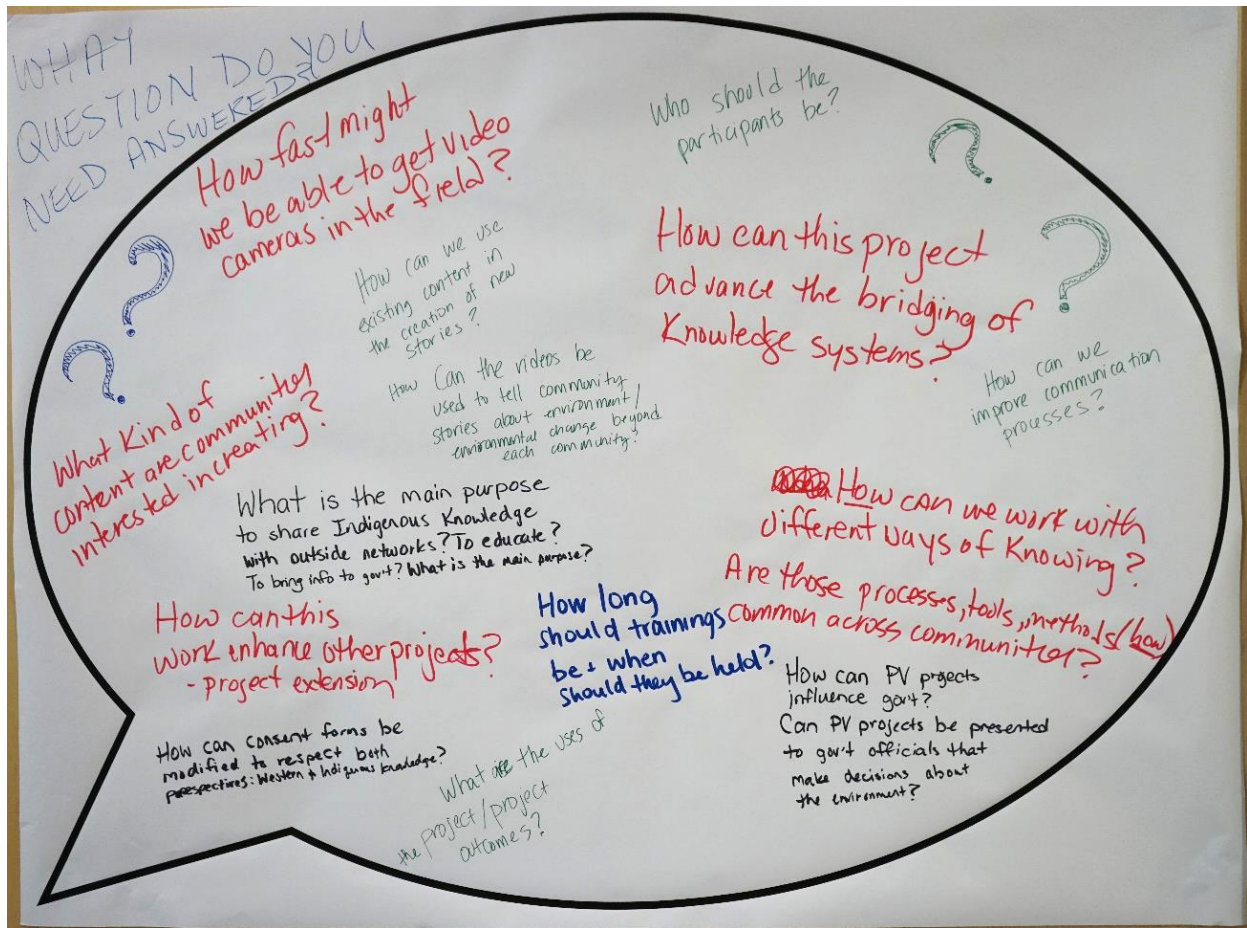 WHAY
QUESTION DO YOU
NEED ANSWERED?
How fast might
we be able to get video
cameras in the field?
Who should the
participants be?
?
How can we use
existing content in
the creation of new
stories?
How can this project
advance the bridging of
Knowledge systems?
?
?
?
How Can the videos be
used to tell community
stories about environment/
environmental change beyond
each community?
How can we
improve communication
processes?
What Kind of
content are communities
interested in creating?
What is the main purpose
to share Indigenous Knowledge
with outside networks? To educate?
To bring info to gov't? What is the main purpose?
How can we work with
different ways of Knowing?
Are those processes, tools, methods (how)
common across communities?
How can this
work enhance other projects?
- project extension
How long
should trainings
be + when
should they be held?
How can PV projects
influence gov't?
Can PV projects be presented
to gov't officials that
make decisions about
the environment?
How can consent forms be
modified to respect both
perespectives: Western + Indigenous knowledge?
What are the uses of
the project/project
outcomes?